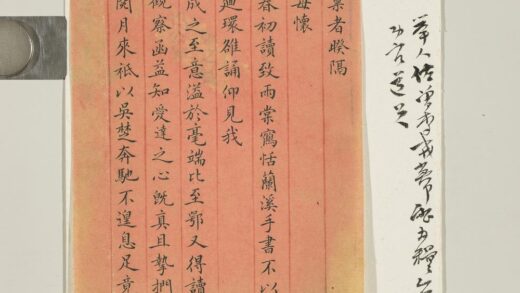 舉人佐曾
者睽隔
每懷
春初讀致雨棠恬蘭溪手書不以
廻環雒誦仰見我
成之至意溢於毫端比至鄂又得讀
觀察函益知愛達之心旣真且摯捫
閱月來祗以吳楚奔馳不遑息足竟